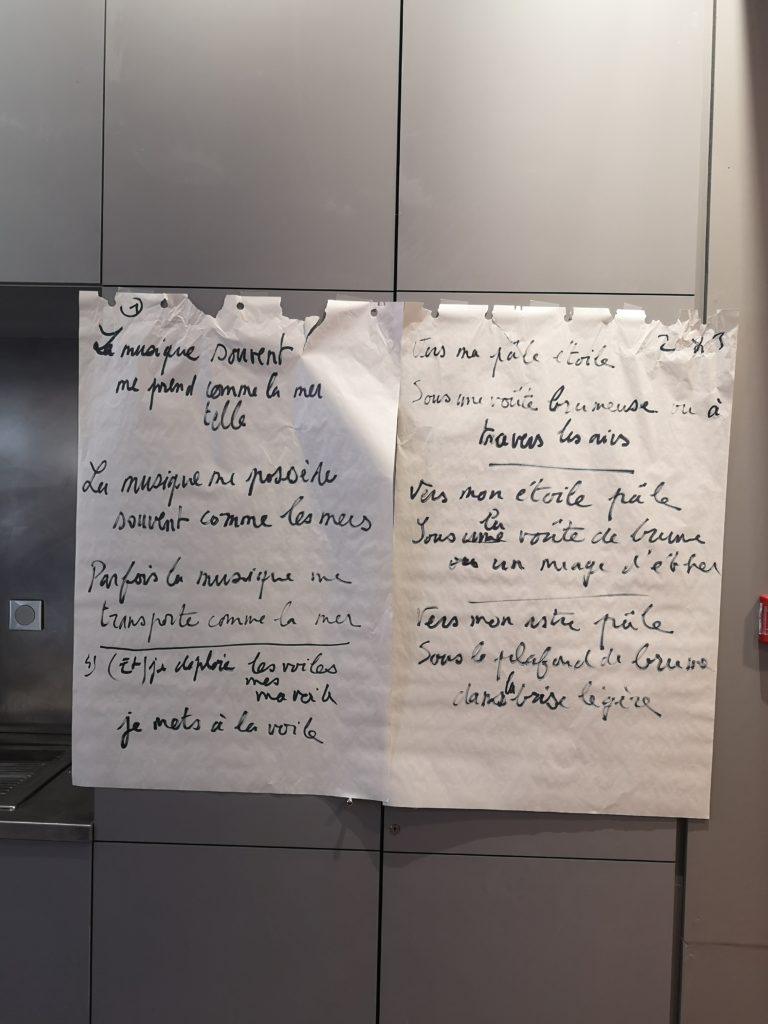 1
La musique souvent
me prend comme la mer
telle
La musique me possède
souvent comme les mers
Parfois la musique me
transporte comme la mer
4) (Et) je déploie les voiles
mes
ma voile
je mets à la voile
2 et 3
Vers ma pâle étoile
Sous une voûte brumeuse ou à
travers les airs
Vers mon étoile pâle
la
Sous une voûte de brume
ou un nuage d'éther
Vers mon astre pâle
Sous le plafond de brume
la
dans brise légère